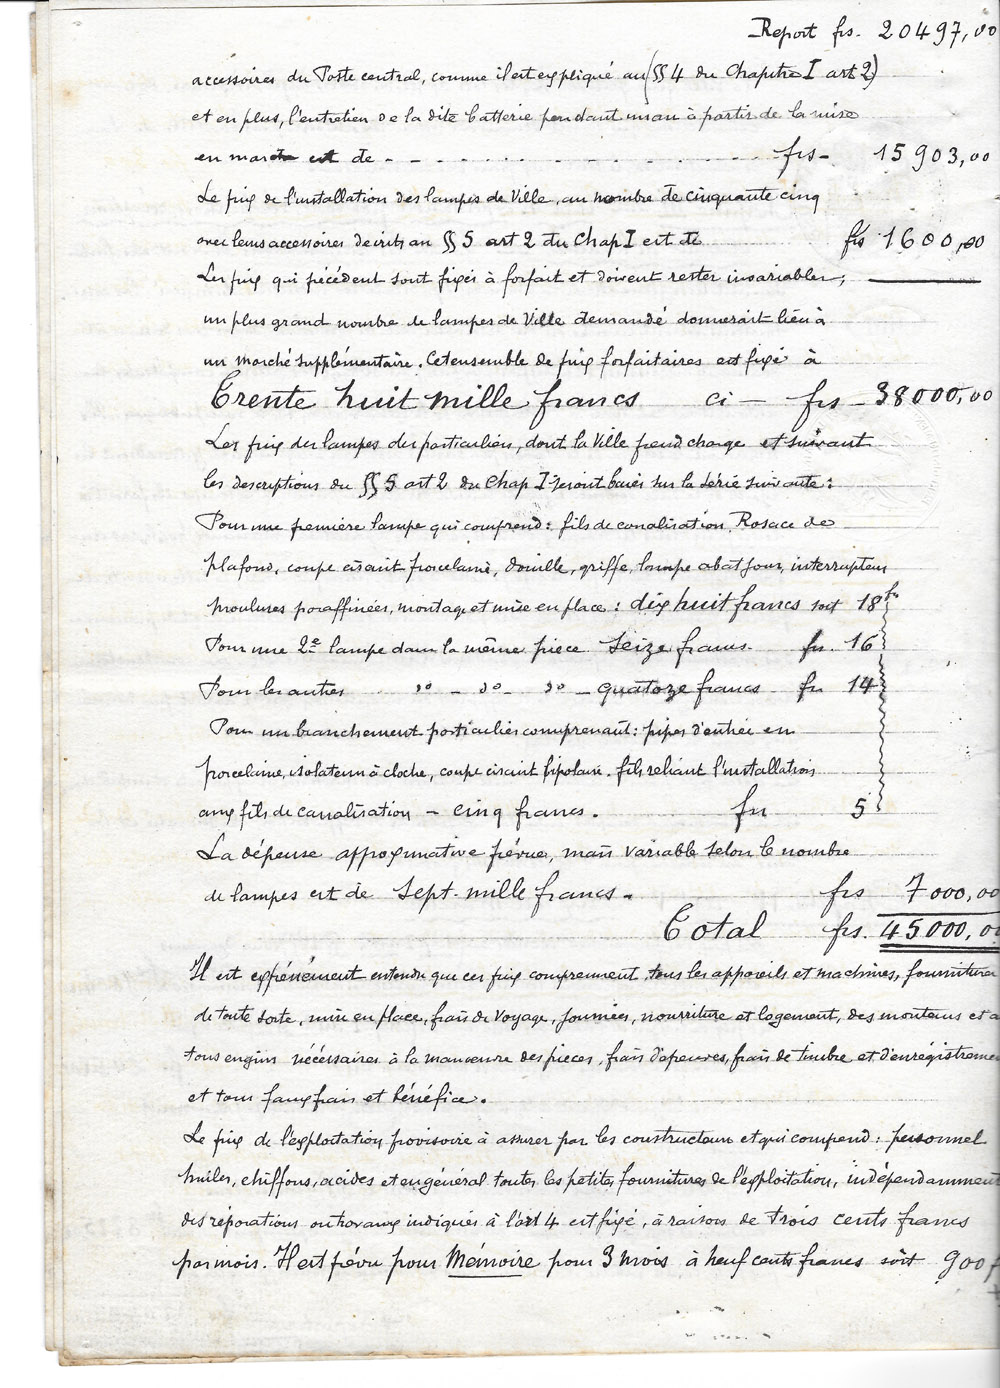 Report frs. 20497,00
accessoires du Poste central, comme il est expliqué au (§§ 4 du Chapitre I art 2)
et en plus, l'entretien de la dite batterie pendant un an à partir de la mise
en marche est de - - - - - frs- 15903,00
Le prix de l'installation des lampes de Ville, au nombre de cinquante cinq
avec leurs accessoires décrits au §§ 5 art 2 du Chap I est de frs 1600,00
Les prix qui précédent sont fixés à forfait et doivent rester invariables;
un plus grand nombre de lampes de Ville demandé donnerait lieu à
un marché supplémentaire. Cet ensemble de prix forfaitaires est fixé à
Trente huit mille francs ci — frs - 38000,00
Les prix des lampes des particuliers, dont la Ville prend charge et suivant
les descriptions du §§ 5 art 2 du Chap I seront basés sur la série suivante :
Pour une première lampe qui comprend : fils de canalisation, Rosace de
plafond, coupe circuit porcelaine, douille, griffe, lampe abat jour, interrupteur
moulures paraffinées, montage et mise en place : dix huit francs soit 18 frs
Pour une 2e lampe dans la même pièce Seize francs. frs. 16
Pour les autres do - do - do - quatorze francs frs 14
Pour un branchement particulier comprenant : pipes d'entrée en
porcelaine, isolateurs à cloche, coupe circuit bipolaire. fils reliant l'installation
aux fils de canalisation - cinq francs. frs 5
La dépense approximative prévue, mais variable selon le nombre
de lampes est de Sept-mille francs. frs 7000,00
Total frs. 45000,00
Il est expréssément entendu que ces prix comprennent tous les appareils et machines, fournitures
de toute sorte, mise en place, frais de voyage, journées, nourriture et logement, des monteurs et a
tous engins nécéssaires à la manœuvre des pièces, frais d'épreuves, frais de timbre et d'enrégistreme
et tous faux frais et bénéfice.
Le prix de l'exploitation provisoire à assurer par les constructeurs et qui comprend : personnel
huiles, chiffons, acides et en général toutes les petites fournitures de l'exploitation, indépendamment
des réparations ou travaux indiqués à l'art 4 est fixé, à raison de trois cents francs
par mois. Il est prévu pour Mémoire pour 3 mois à neuf cents francs soit 900 f